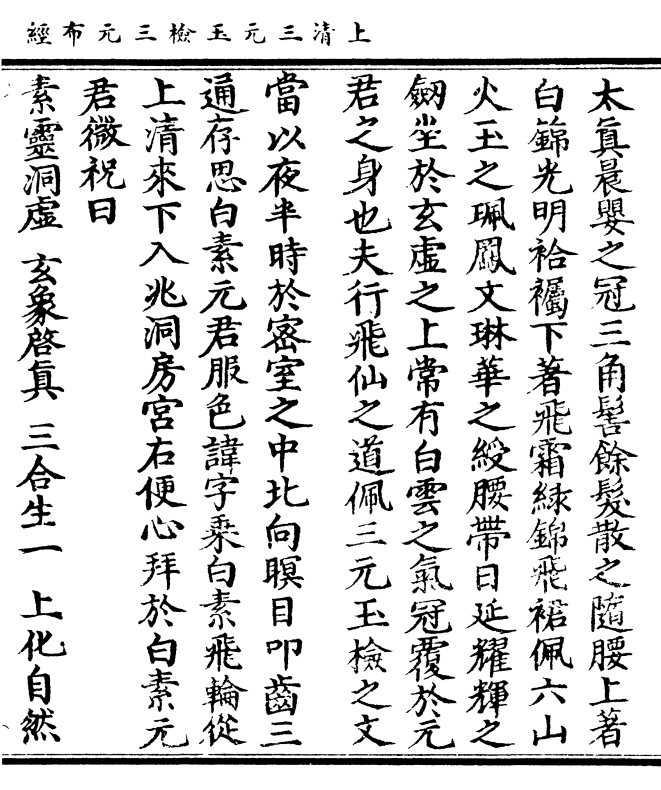 上清三元玉檢三元布經
太真晨嬰之冠三角髻餘髮散之隨腰上著
白錦光明袷襡下著飛霜綠錦飛裙佩六山
火玉之珮鳳文琳華之綬腰帶日延耀輝之
劒坐於玄虛之上常有白雲之氣冠覆於元
君之身也夫行飛仙之道佩三元玉檢之文
當以夜半時於密室之中北向瞑目叩齒三
通存思白素元君服色諱字乘白素飛輪從
上清來下入兆洞房宮右便心拜於白素元
君微祝曰
素靈洞虛 玄象啓真 三合生一 上化自然